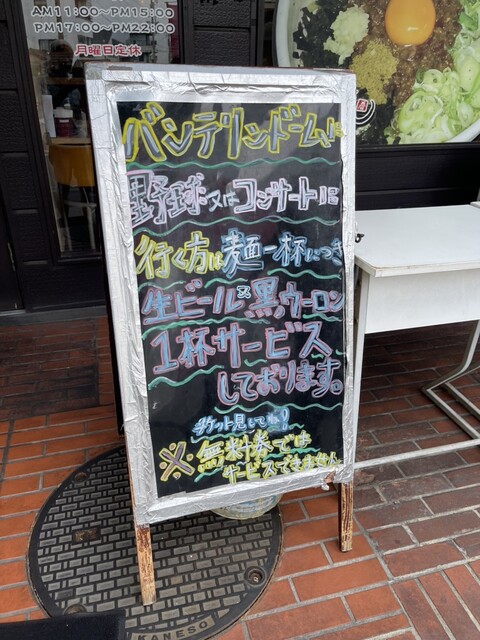 AM11:00～PM15:00
PM17:00～PM22:00
月曜日定休
バンテリンドームに
野球又はコンサートに
行く方は麺一杯につき
生ビール又黒ウーロン
1杯サービス
しております。
チケット見してね!
※無料券では
サービスできません
KANESO